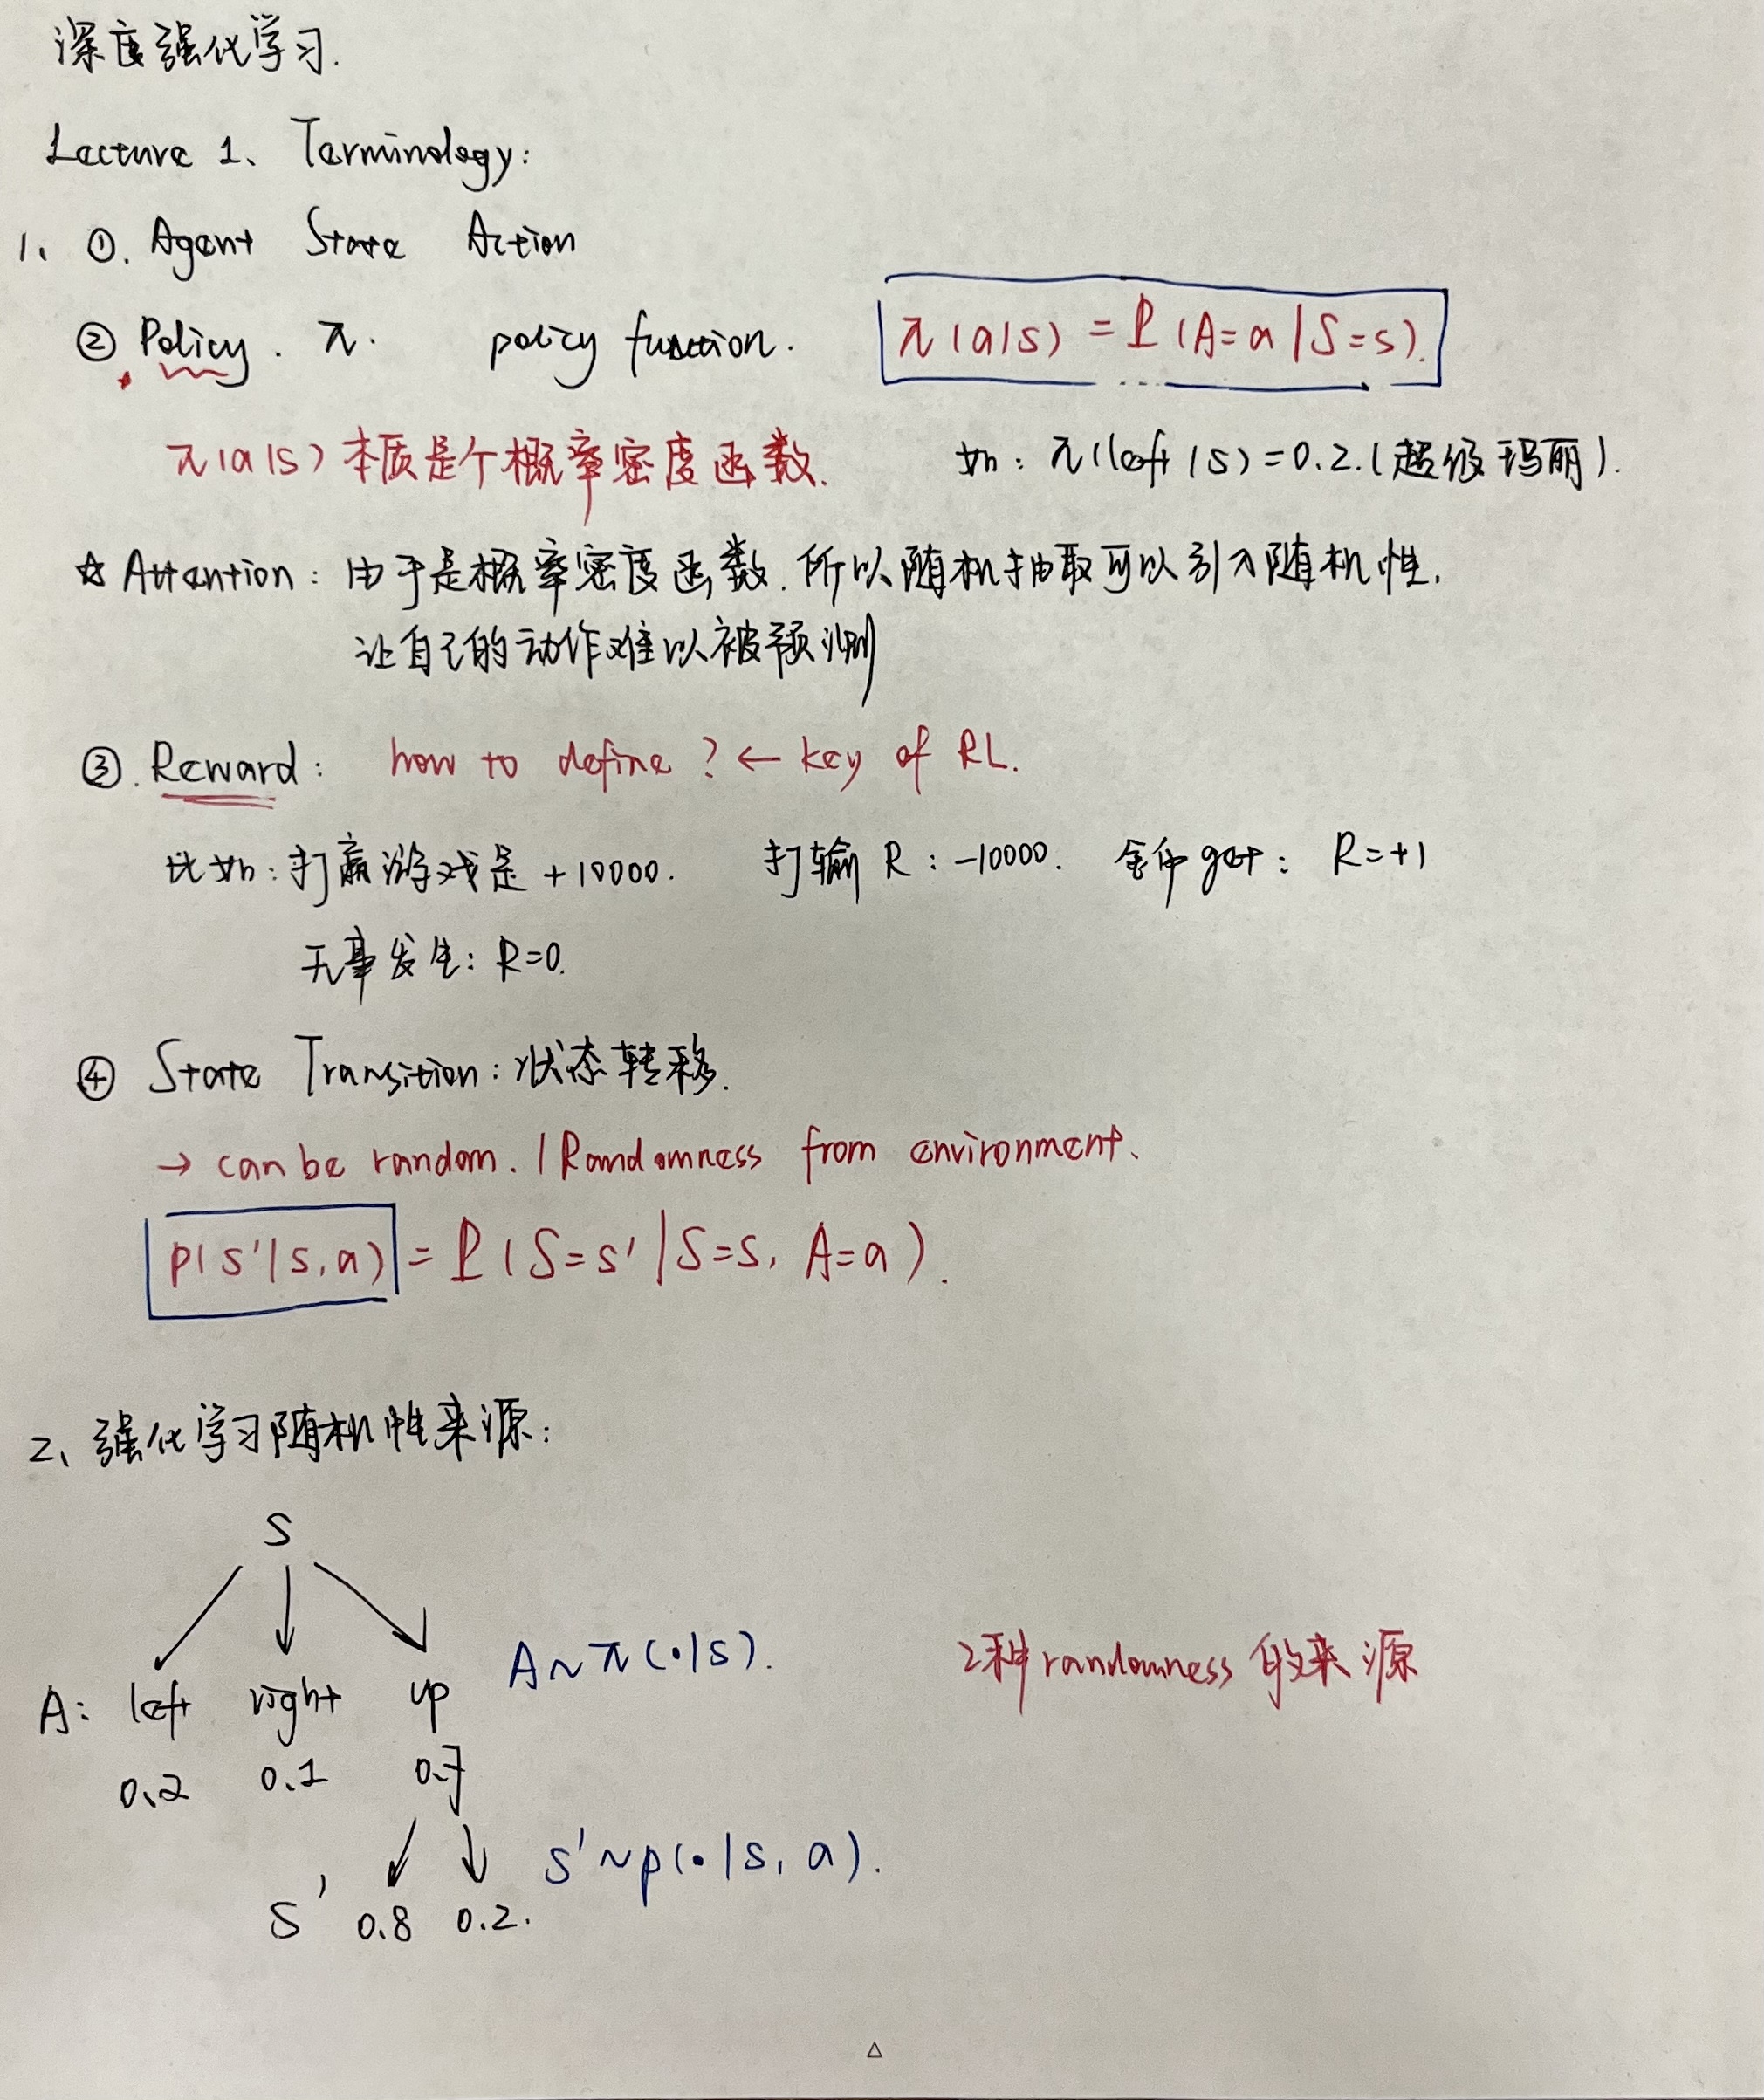 深度强化学习.
Lecture 1、 Terminology:
1、 ①. Agent State Action
② Policy. π. policy function. π(a|s) = P(A=a|S=s).
π(a|s) 本质是个概率密度函数. 如: π(left|s)=0.2.(超级玛丽).
☆ Attention: 由于是概率密度函数. 所以随机抽取可以引入随机性.
让自己的动作难以被预测
③. Reward: how to define ? ← key of RL.
比如: 打赢游戏是 +10000. 打输 R: -10000. 金币 get: R=+1
无事发生: R=0.
④ State Transition: 状态转移.
→ can be random. / Randomness from environment.
p(s'|s,a) = P(S=s'|S=s, A=a).
2、强化学习随机性来源:
S
A: left right up A~π(·|s). 2种 randomness 的来源
0.2 0.1 0.7
S' 0.8 0.2. S'~p(·|s,a).
△